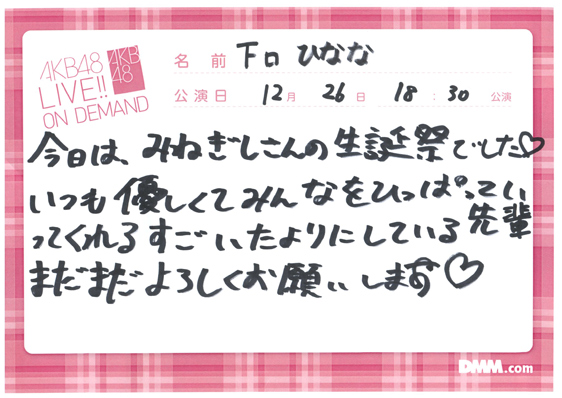 AKB48
LIVE!!
ON DEMAND
AKB
48
名前 下口 ひなな
公演日 12月 26日 18:30 公演
今日は、みねぎしさんの生誕祭でした♡
いつも優しくてみんなをひっぱってい
ってくれるすごいたよりにしている先輩
まだまだよろしくお願いします♡
DMM.com